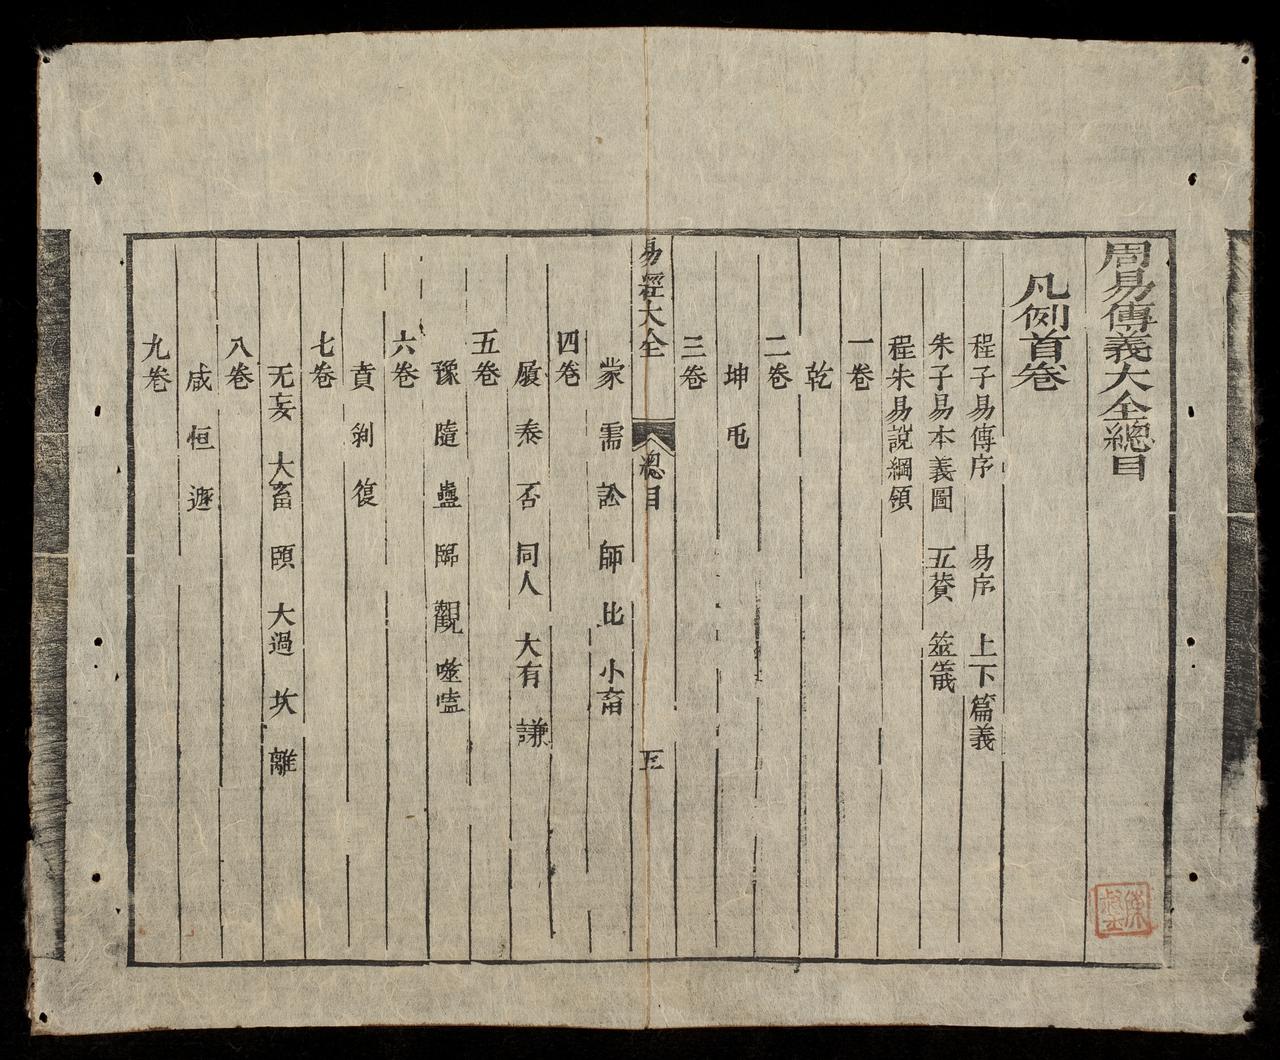 周易傳義大全總目
凡例首卷
程子易傳序 易序 上下篇義
朱子易本義圖 五贊 筮儀
程朱易說綱領
一卷
乾
二卷
坤 屯
三卷
易經大全 總目 五
蒙 需 訟 師 比 小畜
四卷
履 泰 否 同人 大有 謙
五卷
豫 隨 蠱 臨 觀 噬嗑
六卷
賁 剝 復
七卷
无妄 大畜 頤 大過 坎 離
八卷
咸 恒 遯
九卷